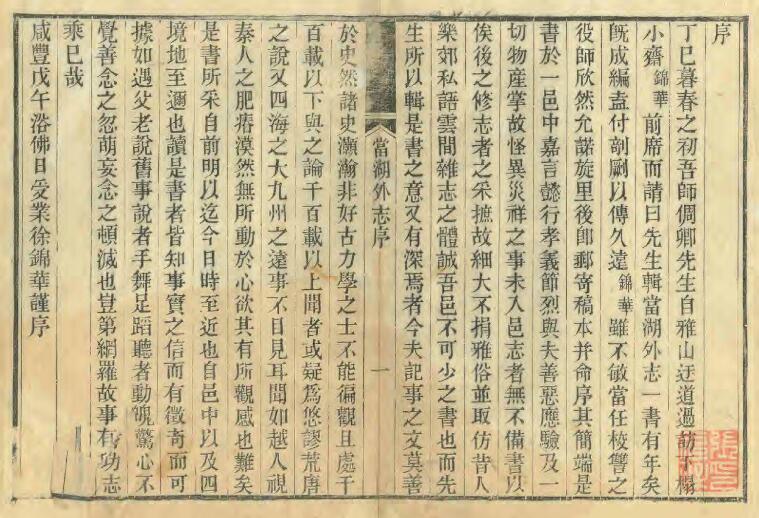 序
丁巳暮春之初吾師倜卿先生自雅山迂道過訪下榻
小齋錦華前席而請曰先生輯當湖外志一書有年矣
既成編盍付剞劂以傳久遠錦華雖不敏當任校讐之
役師欣然允諾旋里後即郵寄稿本并命序其簡端是
書於一邑中嘉言懿行孝義節烈與夫善惡應驗及一
切物產掌故怪異災祥之事未入邑志者無不備書以
俟後之修志者之采摭故細大不捐雅俗並取仿昔人
樂郊私語雲間雜志之體誠吾邑不可少之書也而先
生所以輯是書之意又有深焉者今夫記事之文莫善
當湖外志序
一
於史然諸史灝瀚非好古力學之士不能徧觀且處千
百載以下與之論千百載以上聞者或疑爲悠謬荒唐
之說又四海之大九州之遠事不目見耳聞如越人視
秦人之肥瘠漠然無所動於心欲其有所觀感也難矣
是書所采自前明以迄今日時至近也自邑中以及四
境地至邇也讀是書者皆知事實之信而有徵奇而可
據如遇父老說舊事說者手舞足蹈聽者動魄驚心不
覺善念之忽萌妄念之頓滅也豈第網羅故事有功志
乘已哉
咸豐戊午浴佛日受業徐錦華謹序